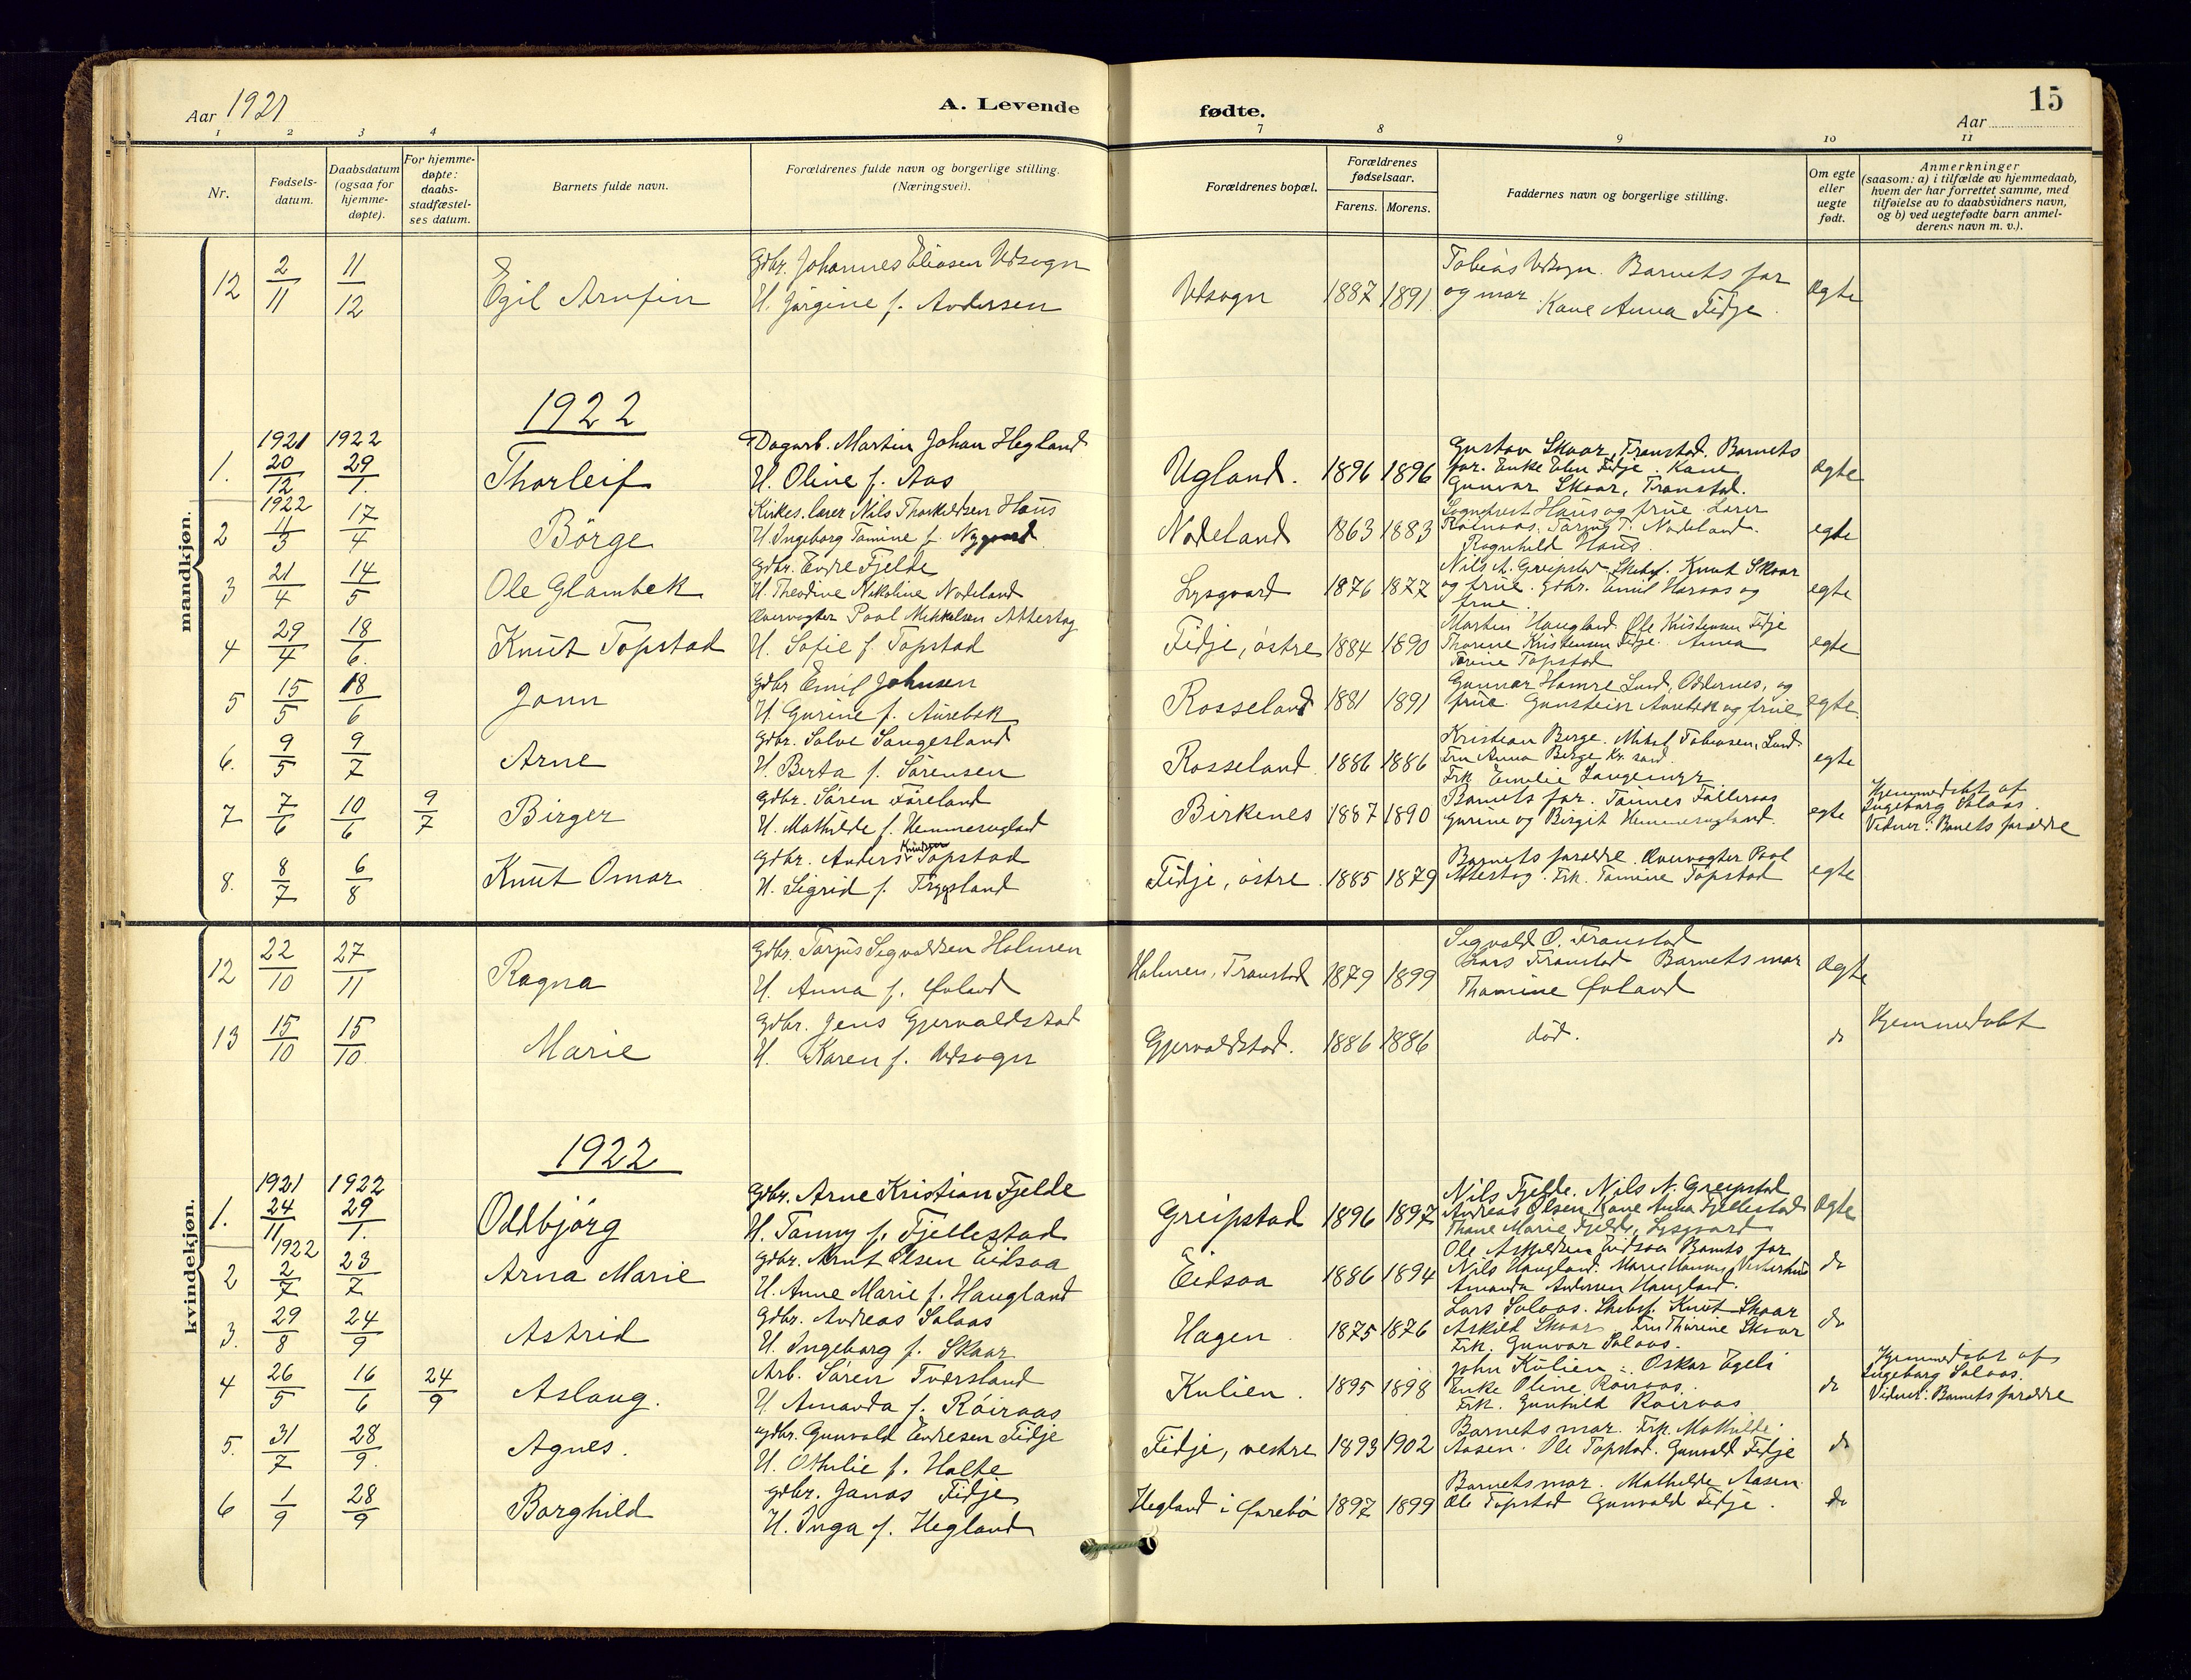 Aar 1921
A. Levende
fødte.
15
Aar
1 2 3 4 7 8 9 10 11
Nr.
Fødsels-
datum.
Daabsdatum
(ogsaa for
hjemme-
døpte).
For hjemme-
døpte:
daabs-
stadfæstel-
ses datum.
Barnets fulde navn.
Forældrenes fulde navn og borgerlige stilling.
(Næringsvei).
Forældrenes bopæl.
Forældrenes
fødselsaar.
Farens. Morens.
Faddernes navn og borgerlige stilling.
Om egte
eller
uegte
født.
Anmerkninger
(saasom: a) i tilfælde av hjemmedaab,
hvem der har forrettet samme, med
tilføielse av to daabsvidners navn,
og b) ved uegtefødte barn anmel-
derens navn m. v.).
mandkjøn.
12 2/11 11/12 Egil Arnfin
Gdbr. Johannes Eliasen Udsogn
H. Jørgine f. Andersen
Udsogn 1887 1891
Tobias Udsogn. Barnets far
og mor. Kone Anna Fidje.
Ægte
1922
1921 1922
1. 20/12 29/1. Thorleif
Dagarb. Martin Johan Hegland
H. Oline f. Aas
Ugland. 1896 1896
Gustav Skaar, Transtad. Barnets
far. Enke Elen Fidje. Kone
Gunvor Skaar, Transtad.
Ægte
1922
2 11/3 17/4 Börge
Kirkes. lærer Nils Thorkildsen Haus
H. Ingeborg Tomine f. Nygaard
Nodeland 1863 1883
Sogneprest Haus og frue. Lærer
Röinaas. Nodeland.
Ragnhild Haus.
egte
3 21/4 14/5 Ole Glambek
Gdbr. Endre Fjelde
H. Theodine Nikoline Nodeland
Lysgaard 1876 1877
Nils A. Greipstad. Skibsf. Knut Skaar
og frue. Gdbr. Emil Haraas og
frue.
egte
4 29/4 18/6. Knut Topstad
Ævervogter Paal Mikkelsen Attestog
H. Sofie f. Topstad
Fidje, östre 1884 1890
Martin Haugland. Ole Kristensen Fidje
Thorine Kristensen Fidje. Anna
Torine Topstad
egte
5 15/5 18/6 Jonn
Gdbr Emil Johnsen
H. Gurine f. Aurebek
Rosseland 1881 1891
Gunnar Hamre Lund, Oddernes, og
frue. Gunstein Aurebek og frue
egte.
6. 9/5 9/7 Arne
Gdbr. Salve Sangesland
H. Berta f. Sörensen
Rosseland 1886 1886
Kristian Berge. Mikal Tobiasen, Lund
Fru Anna Berge Kr. sand.
Frk. Emelie Langemyr
egte
7 7/6 10/6 9/7 Birger
Gdbr. Sören Föreland
H. Mathilde f. Hemmersugland
Birkenes 1887 1890
Barnets far. Tönnes Fælleraas
Gurine og Birgit Hemmersugland.
egte
Hjemmedøbt af
Ingeborg Solaas.
Vidner: Barnets forældre
8. 8/7 6/8 Knut Omar
Gdbr. Anders Knudsen Topstad
H. Sigrid f. Trygsland
Fidje, östre 1885 1879
Barnets forældre. Ævervogter Paal
Attestog. Frk. Tomine Topstad
egte
kvindekjøn.
12 22/10 27/11 Ragna
Gdbr. Tarjus Segvaldsen Holmen
H. Anna f. Øvland
Holmen, Transtad 1879 1899
Segvald O. Transtad
Lars Transtad Barnets mor
Thomine Øvland
Ægte
13 15/10 15/10. Marie
Gdbr. Jens Gjervaldstad
H. Karen f. Udsogn
Gjervaldstad. 1886 1886
död.
do
Hjemmedøbt
1922
1921 1922
1. 24/11 29/1. Oddbjörg
Gdbr. Arne Kristian Fjelde
H. Tanny f. Fjellestad
Greipstad 1896 1897
Nils Fjelde. Nils N. Greipstad
Andreas Olsen Kone Anna Fjellestad
Thone Marie Fjelde, Lysgaard
Ægte
1922
2 2/7 23/7 Arna Marie
Gdbr. Arnt Olsen Eidsaa
H. Anne Marie f. Haugland
Eidsaa 1886 1894
Ole Askildsen Eidsaa Barnets far
Nils Haugland.
Amanda Andersen Haugland.
do
3. 29/8 24/9 Astrid
Gdbr. Andreas Solaas
H. Ingeborg f. Skaar
Hagen. 1875 1876
Lars Solaas. Skibsf. Knut Skaar
Askild Skaar. Fru Thorine Skaar
Frk. Gunvor Solaas.
do
4 26/5 16/6 24/9 Aslaug.
Arb. Sören Tversland
H. Amanda f. Röiraas
Kulien. 1895 1898
John Kulien. Oskar Egeli
Enke Oline Röiraas.
Frk. Gunhild Röiraas
do
Hjemmedøbt af
Ingeborg Solaas.
Vidner: Barnets forældre
5. 31/7 28/9. Agnes.
Gdbr. Gunvald Endresen Fidje
H. Othilie f. Holte
Fidje, vestre 1893 1902
Barnets mor. Frk. Mathilde
Aasen. Ole Topstad. Gunvald Fidje
do
6 1/9 28/9 Borghild
Gdbr. Jonas Fidje
H. Inga f. Hegland
Hegland i Øvrebø 1897 1899
Barnets mor. Mathilde Aasen.
Ole Topstad Gunvald Fidje.
do